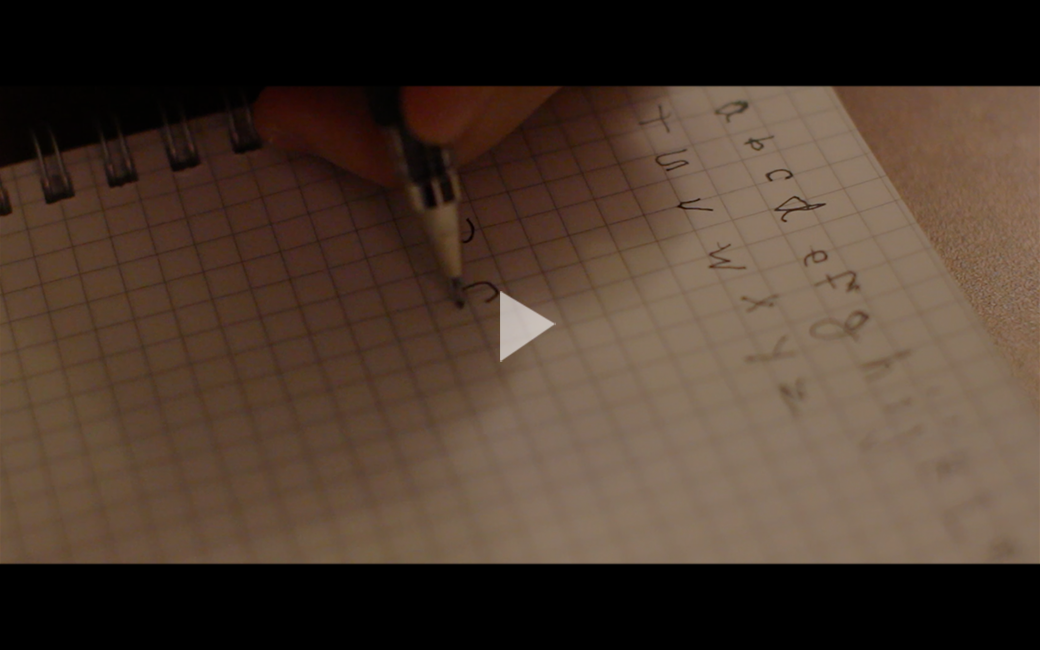 a b c d e f g h i j k l
t u v w x y z